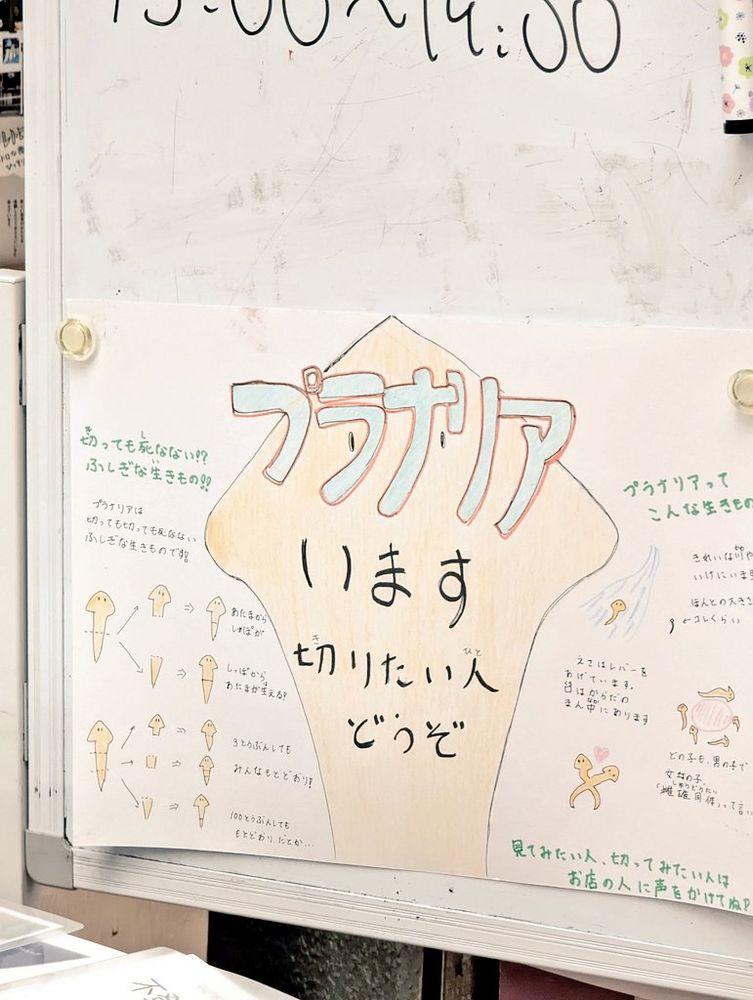 13:00～14:30
プラナリア
います
切りたい人
き
ひと
どうぞ
切っても死なない!?
き
し
ふしぎな生きもの!!
い
プラナリアは
切っても切っても死なない
ふしぎな生きものです!!
あたまから
しっぽが
しっぽから
あたまが生える!?
3とうぶんしても
みんなもとどおり!
100とうぶんしても
もとどおり、だとか…
プラナリアって
こんな生きもの
きれいな川や
いけにいます
ほんとの大きさ
←コレくらい
えさはレバーを
あげています。
口はからだの
まん中にあります
どの子も、男の子で
女の子。
「雌雄同体」って言い
見てみたい人、切ってみたい人は
お店の人に声をかけてね!